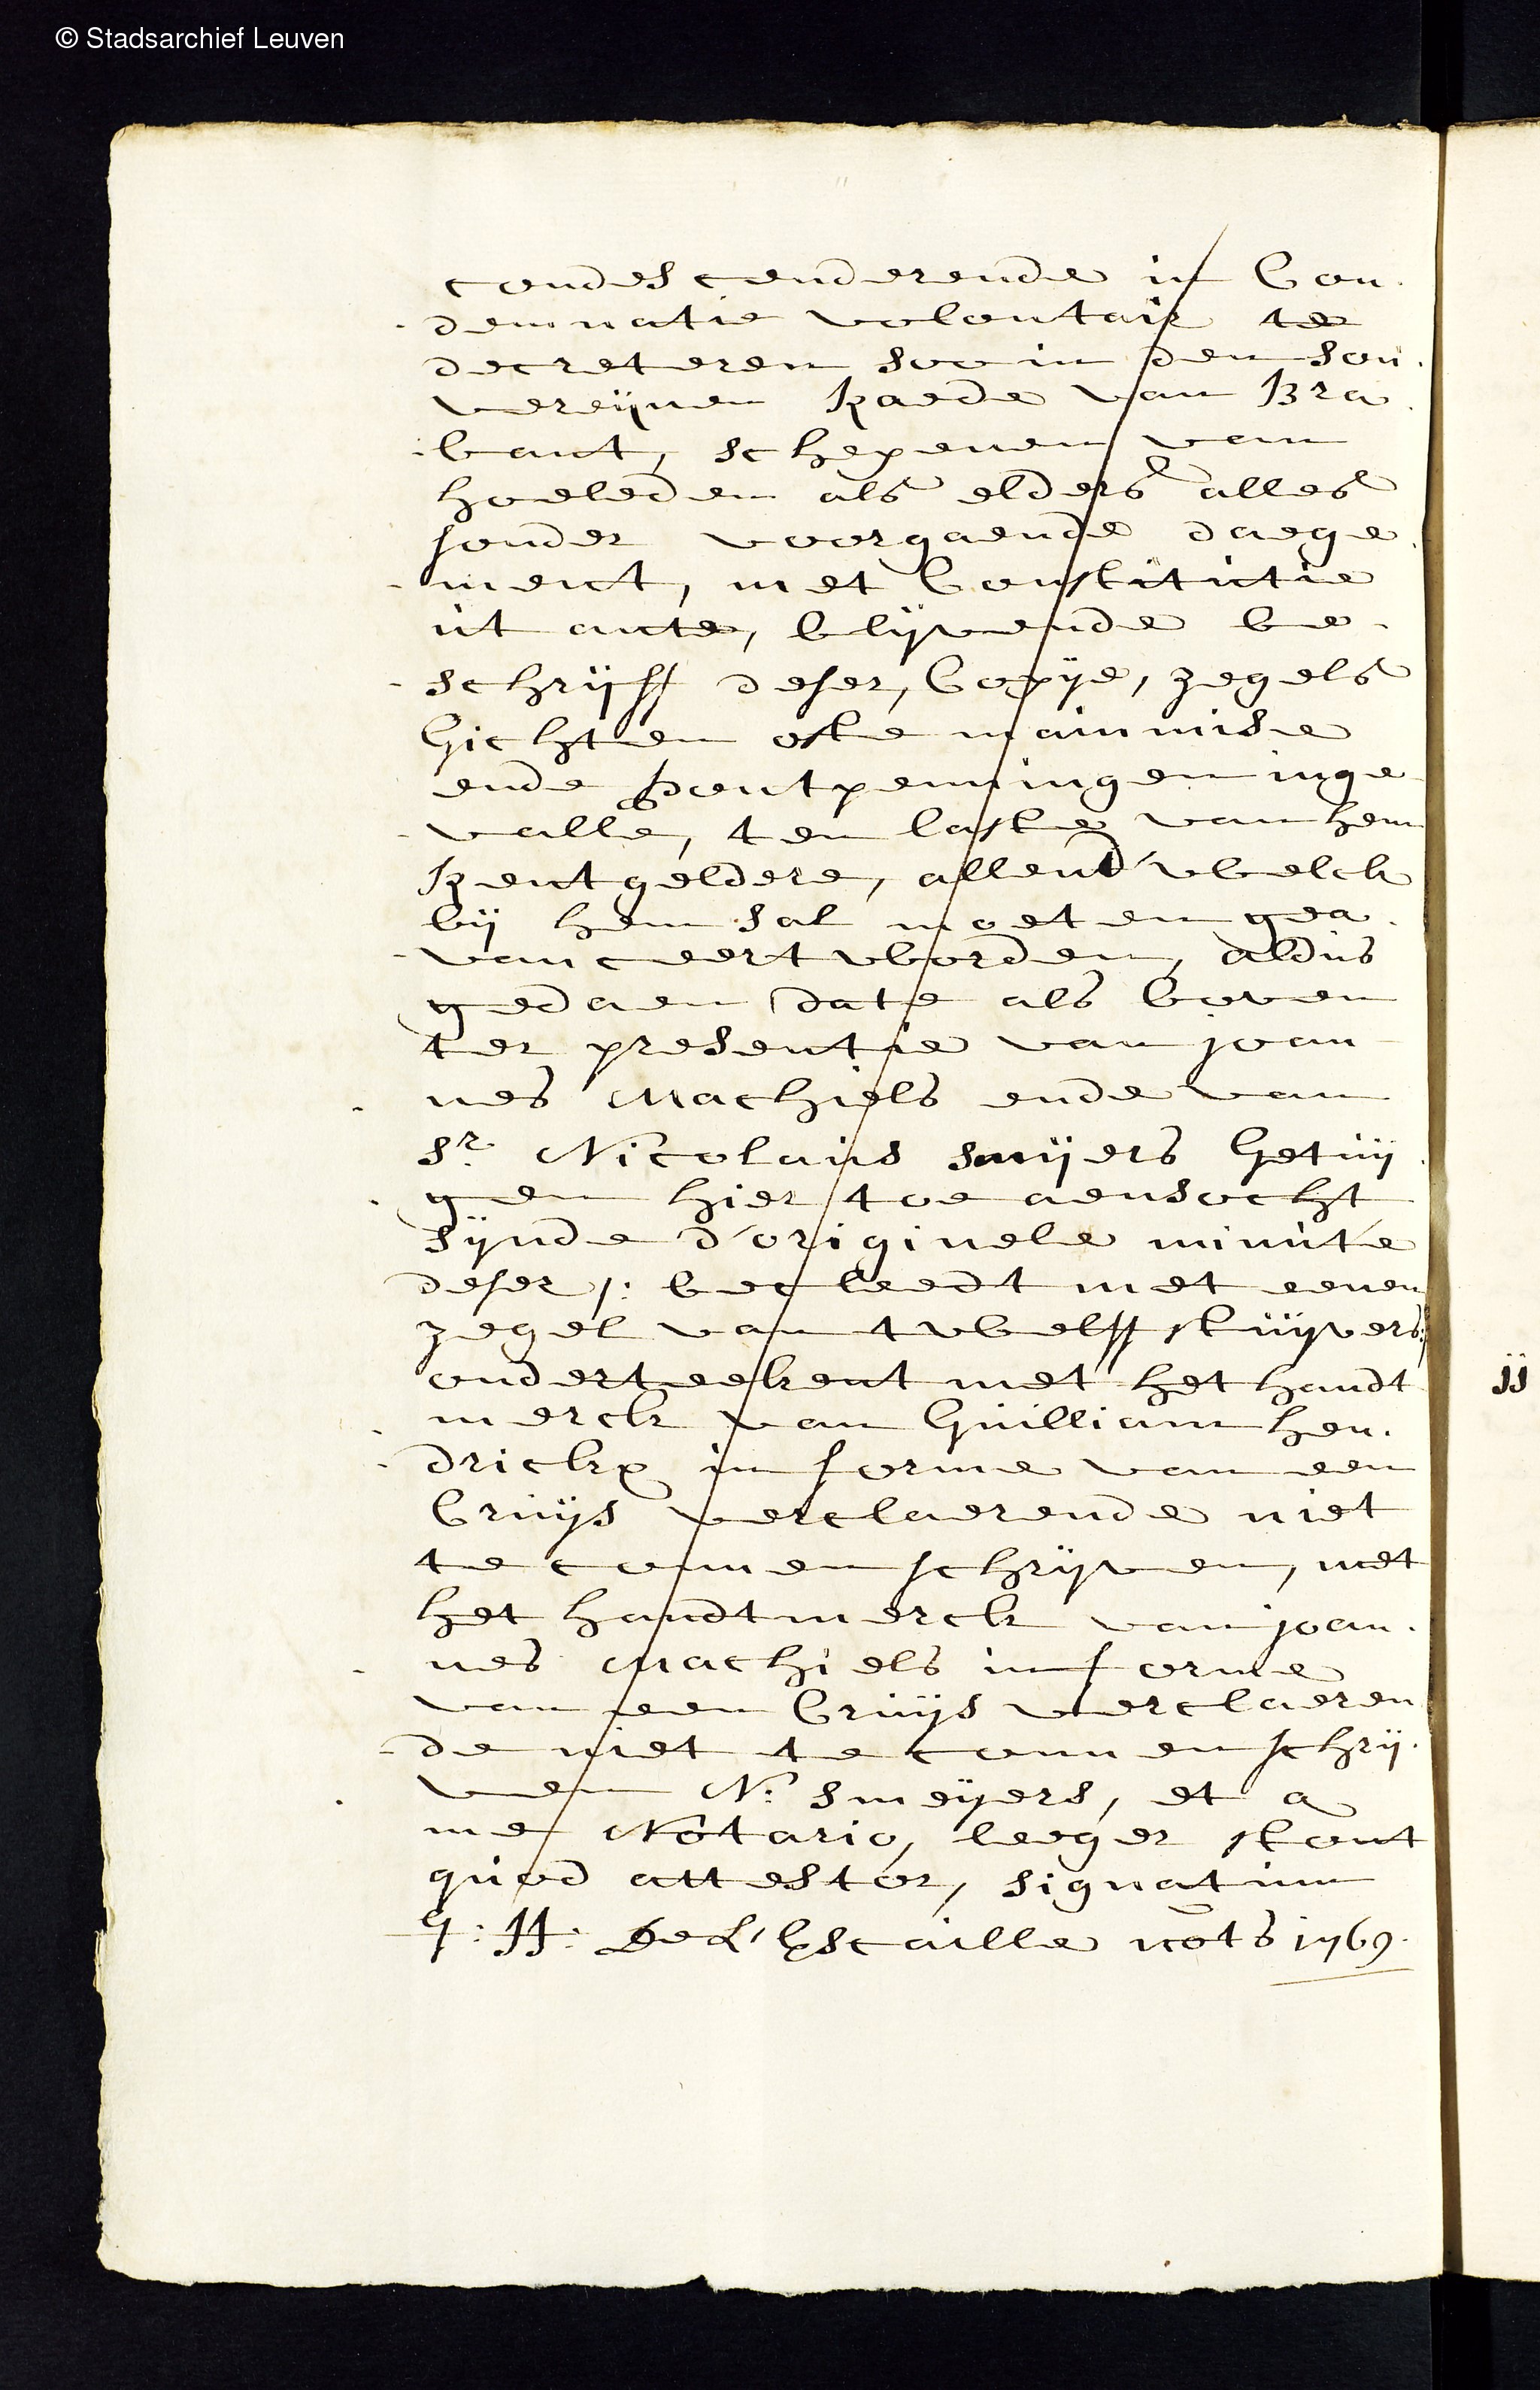 © Stadsarchief Leuven
condescenderende in Con
demnatie volontair te
decreteren soo in den sou
vereijnen Raede van Bra
bant, schepenen van
hoeleden als elders alles
sonder voorgaende daege
ment, met Constitutie
ut ante, blijvende be
schrijff deser, Copije, zegels
Gichten ofte mainmise
ende pontpenningen inge
valle, ten laste van hem
Rentgeldere, allent' welck
bij hem sal moeten gea
vanceert worden, aldus
gedaen date als boven
ter presentie van joan
nes Machiels ende van
Sr. Nicolaus smijers Getuij
gen hier toe aensocht
sijnde d'originele minute
deser /: becleedt met eenen
zegel van twelff stuijvers:/
onderteekent met het handt
merck van Guilliam hen
drickx in forme van een
Cruijs verclaerende niet
te connen schrijven, met
het handtmerck van joan
nes Machiels in forme
van een Cruijs verclaeren
de niet te connen schrij
ven N: smeijers, et a
me Notario, leeger stont
quod attestor, signatum
G: H: De L'Escaille nots 1769.
jj